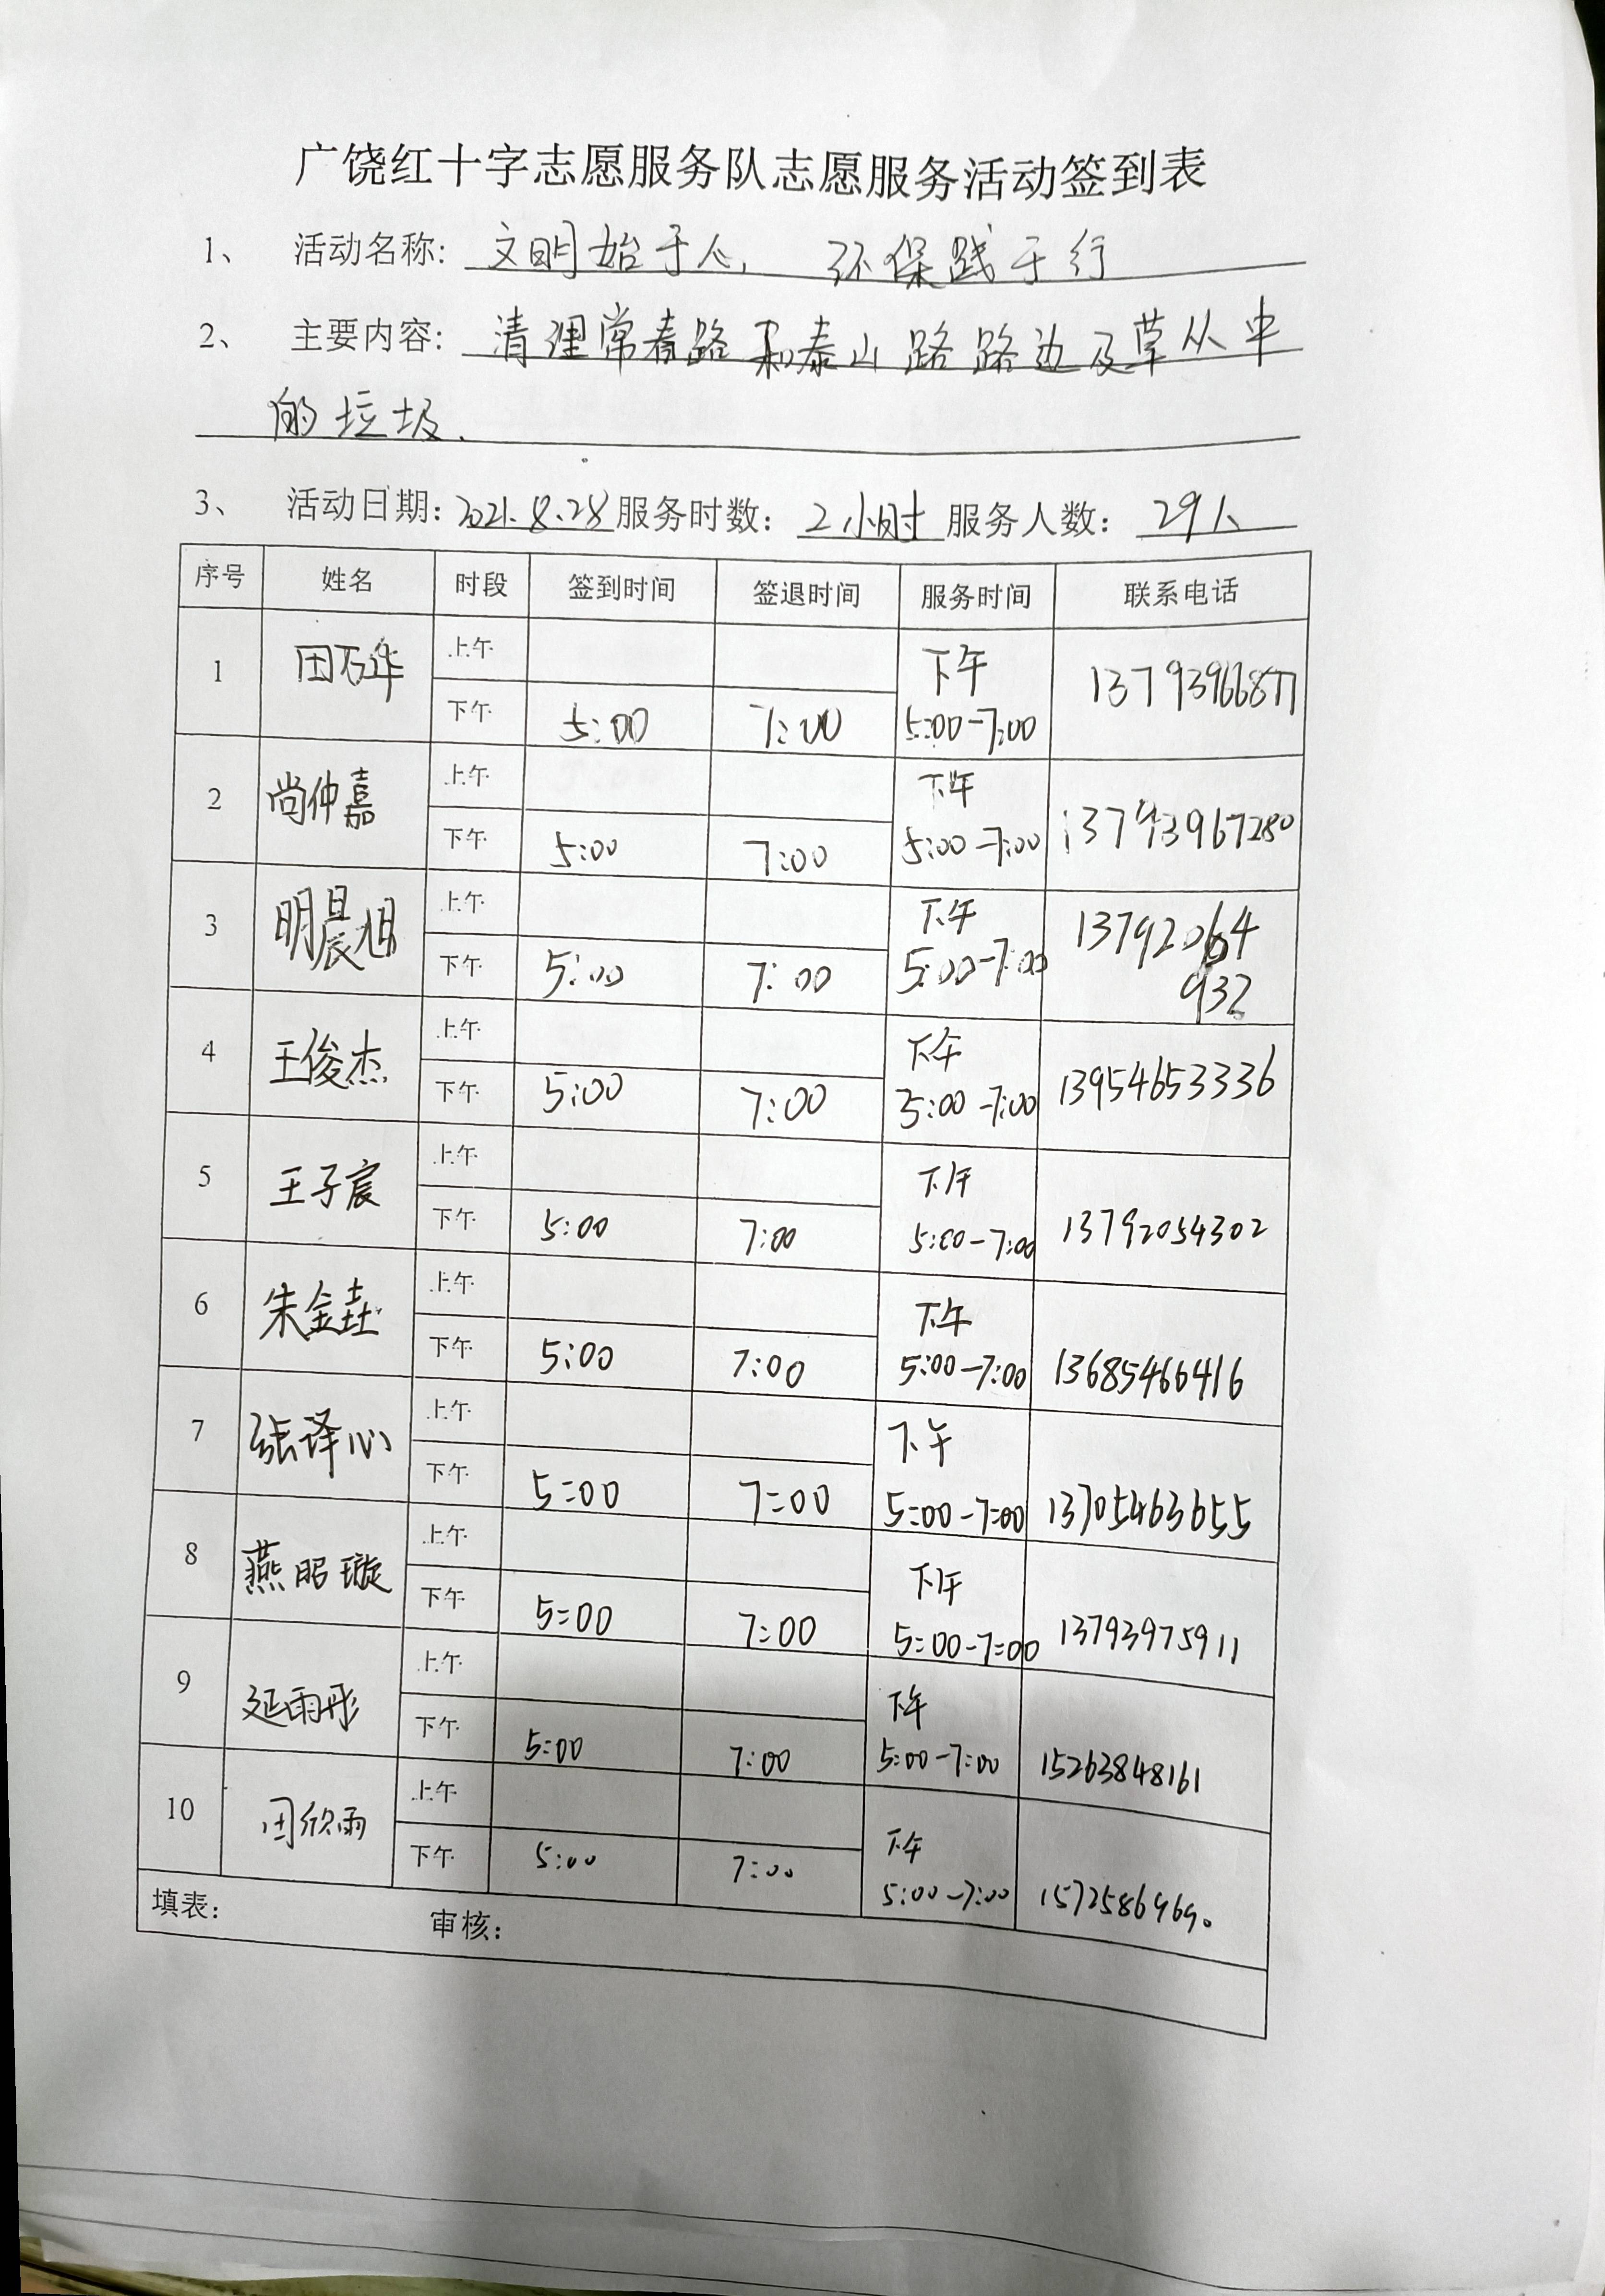 广饶红十字志愿服务队志愿服务活动签到表
1、 活动名称: 文明始于人, 环保践于行
2、 主要内容: 清理常春路和泰山路路边及草从中
的垃圾.
3、 活动日期: 2021.8.28 服务时数: 2小时 服务人数: 29人
序号 姓名 时段 签到时间 签退时间 服务时间 联系电话
1 田万华 上午 下午 13793966877
下午 5:00 7:00 5:00-7:00
2 尚仲嘉 上午 下午 13793967280
下午 5:00 7:00 5:00-7:00
3 明晨旭 上午 下午 13792064
下午 5:00 7:00 5:00-7:00 932
4 王俊杰 上午 下午 13954653336
下午 5:00 7:00 5:00-7:00
5 王子宸 上午 下午
下午 5:00 7:00 5:00-7:00 13792054302
6 朱金垚 上午 下午
下午 5:00 7:00 5:00-7:00 13685466416
7 张译心 上午 下午
下午 5:00 7:00 5:00-7:00 13705463655
8 燕昭璇 上午 下午
下午 5:00 7:00 5:00-7:00 13793975911
9 延雨彤 上午 下午
下午 5:00 7:00 5:00-7:00 15263848161
10 田欣雨 上午 下午
下午 5:00 7:00 5:00-7:00
填表: 审核: